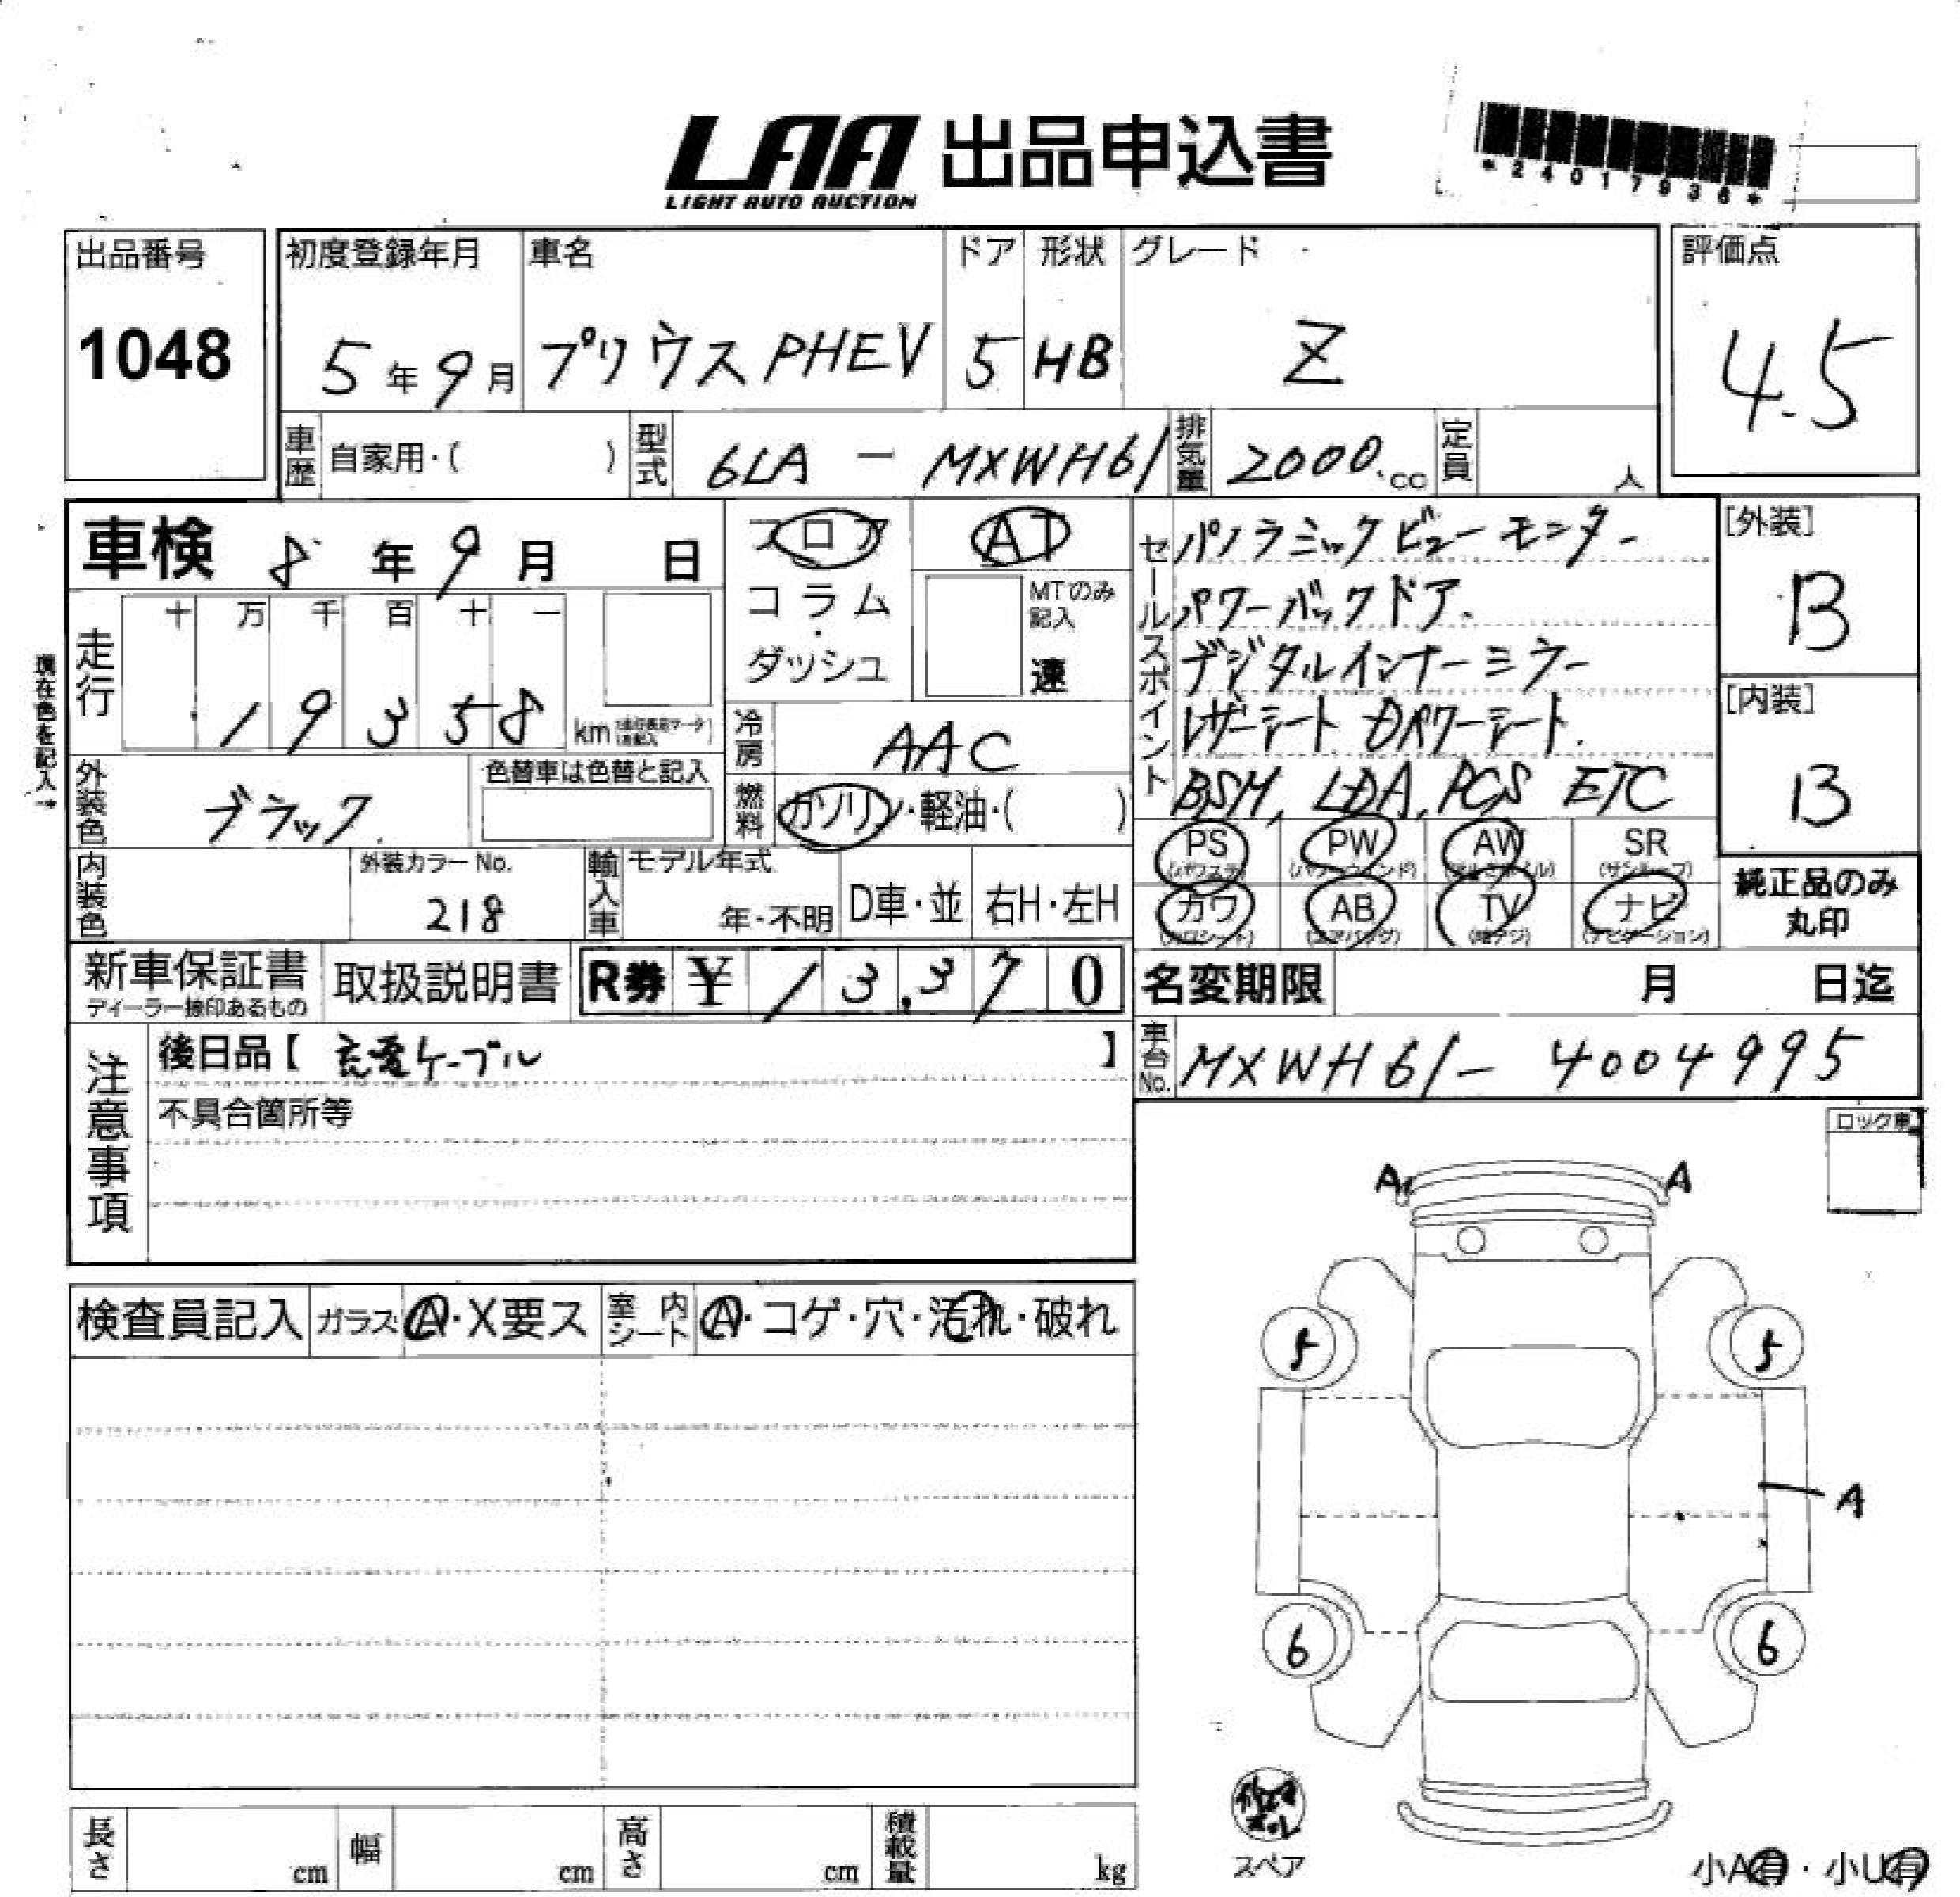 LAA 出品申込書
LIGHT AUTO AUCTION
*24017936*
出品番号
1048
初度登録年月
5年9月
車名
プリウスPHEV
ドア
5
形状
HB
グレード
Z
評価点
4.5
車歴
自家用・( )
型式
6LA - MXWH61
排気量
2000.cc
定員
人
車検 8年9月 日
フロア
コラム・ダッシュ
AT
MTのみ記入
速
現在色を記入→
走行
十万千百十一
19358
km
冷房
AAC
外装色
ブラック
色替車は色替と記入
燃料
ガソリン・軽油・( )
内装色
外装カラーNo.
218
輸入車
モデル年式
年・不明
D車・並
右H・左H
セールスポイント
パノラミックビューモニター
パワーバックドア.
デジタルインナーミラー
レザーシート Dパワーシート.
BSM, LDA, PCS ETC
[外装]
B
[内装]
B
PS
(パワステ)
PW
(パワーウインド)
AW
(アルミホイル)
SR
(サンルーフ)
カワ
(カワシート)
AB
(エアバッグ)
TV
(地デジ)
ナビ
(ナビゲーション)
純正品のみ
丸印
新車保証書
ディーラー捺印あるもの
取扱説明書
R券 ¥13,370
名変期限 月 日迄
車台No.
MXWH61-4004995
注意事項
後日品【 充電ケーブル 】
不具合箇所等
ロック車
検査員記入
ガラス
A・X要ス
室内シート
A・コゲ・穴・汚れ・破れ
A
A
5
5
A
6
6
スペア
長さ
cm
幅
cm
高さ
cm
積載量
kg
小A有・小U有